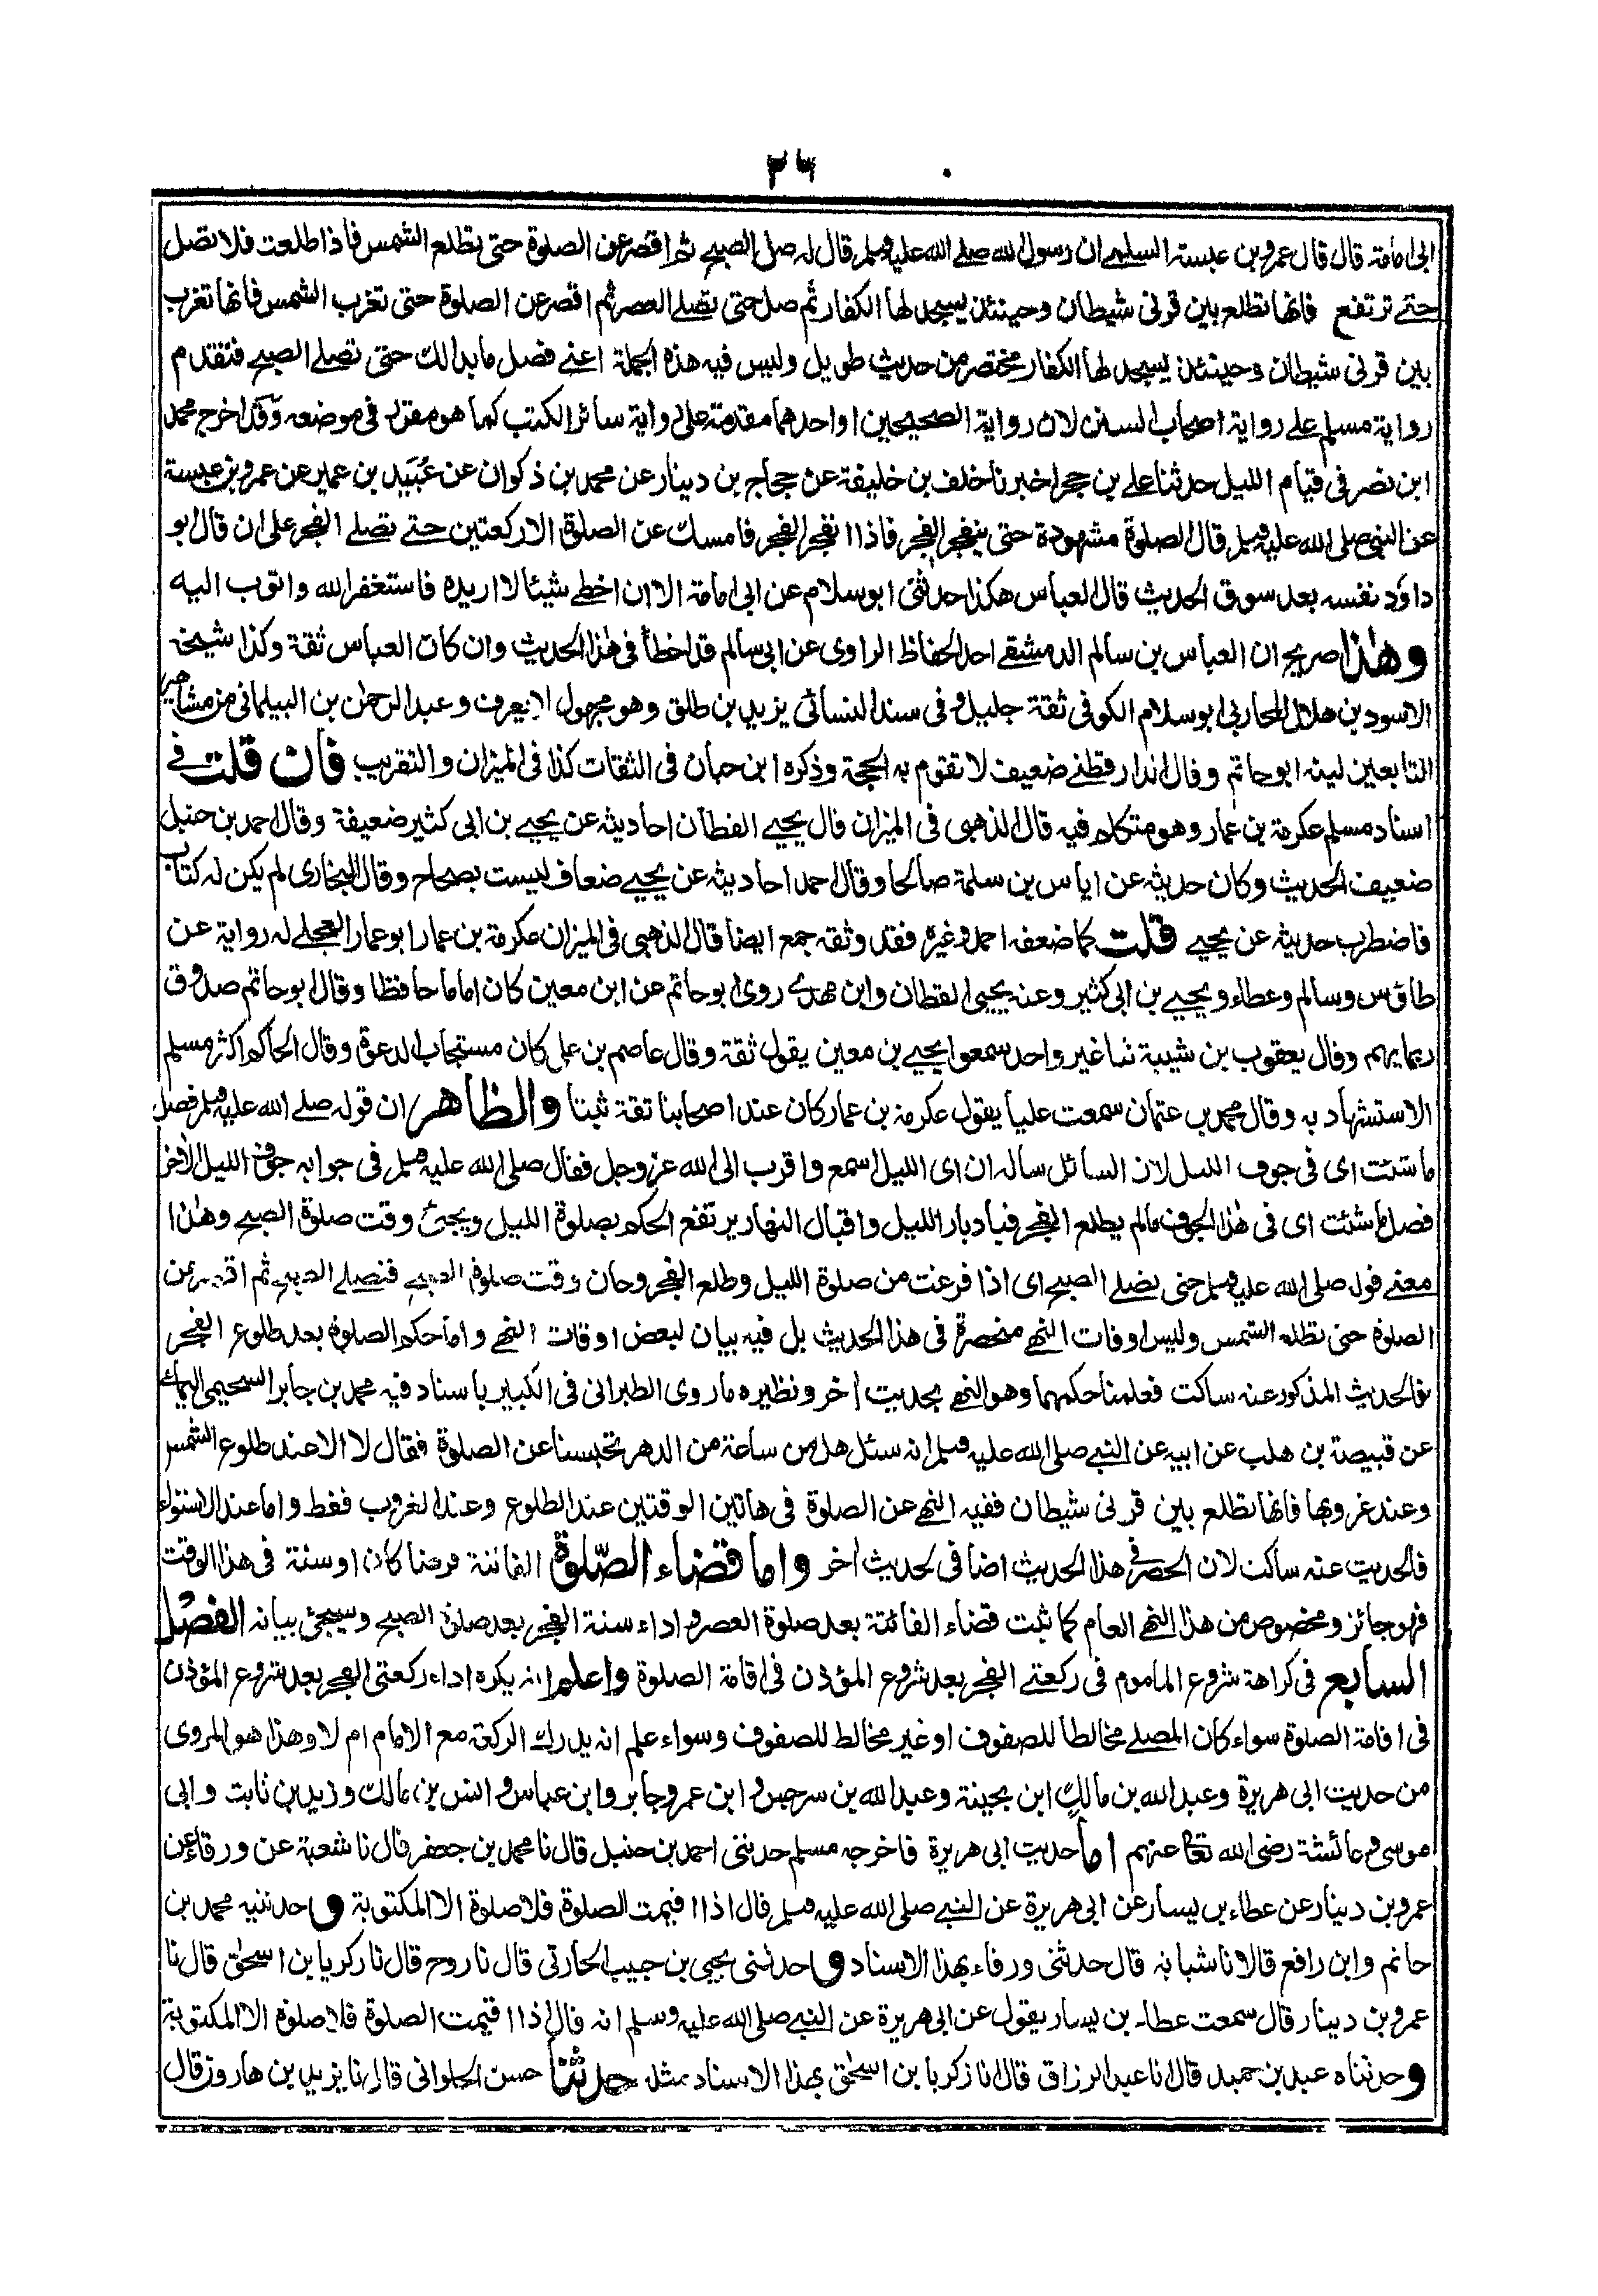 ٣٦
ابى امامة قال قال عمرو بن عبسة السلمى ان رسول الله صلے الله عليه وسلم قال له صل الصبح ثم اقصر عن الصلوة حتى تطلع الشمس فاذا طلعت فلا تصل
حتے ترتفع فانها تطلع بين قرنى شيطان وحينئذ يسجد لها الكفار ثم صل حتى تصلے العصر ثم اقصر عن الصلوة حتى تغرب الشمس فانها تغرب
بين قرنى شيطان وحينئذ يسجد لها الكفار مختصر من حديث طويل وليس فيه هذه الجملة اعنے فصل ما بدا لك حتى تصلے الصبح فتقدم
رواية مسلم على رواية اصحاب السنن لان رواية الصحيحين او احدهما مقدمة على رواية سائر الكتب كما هو مقرر فى موضعه وقد اخرج محمد
ابن نصر فى قيام الليل حدثنا علے بن حجر اخبرنا خلف بن خليفة عن حجاج بن دينار عن محمد بن ذكوان عن عُبَيد بن عمير عن عمرو بن عبسة
عن النبى صلى الله عليه وسلم قال الصلوة مشهودة حتى ينفجر الفجر فاذا انفجر الفجر فامسك عن الصلوة الا ركعتين حتے تصلے الفجر على ان قال ابو
داؤد نفسه بعد سوق الحديث قال العباس هكذا حدثنى ابو سلام عن ابى امامة الا ان اخطے شيئا لا اريده فاستغفر الله واتوب اليه
وهذا صريح ان العباس بن سالم الدمشقے احد الحفاظ الراوى عن ابى سالم قد اخطأ فى هذا الحديث وان كان العباس ثقة وكذا شيخه
الاسود بن هلال المحاربى ابو سلام الكوفى ثقة جليل و فى سند النسائى يزيد بن طلق وهو مجهول لا يعرف وعبد الرحمن بن البيلمانى من مشاهير
التابعين لينه ابو حاتم وقال الدارقطنے ضعيف لا تقوم به الحجة وذكره ابن حبان فى الثقات كذا فى الميزان والتقريب فان قلت فے
اسناد مسلم عكرمة بن عمار وهو متكلم فيه قال الذهبى فى الميزان قال يحيے القطان احاديثه عن يحيے بن ابى كثير ضعيفة وقال احمد بن حنبل
ضعيف الحديث وكان حديثه عن اياس بن سلمة صالحا وقال احمد احاديثه عن يحيے ضعاف ليست بصحاح وقال البخارى لم يكن له كتاب
فاضطرب حديثه عن يحيے قلت كما ضعفه احمد وغيره فقد وثقه جمع ايضا قال الذهبى فى الميزان عكرمة بن عمار ابو عمار العجلے له رواية عن
طاؤس وسالم وعطاء ويحيے بن ابى كثير وعنه يحيى القطان وابن مهدے روى ابو حاتم عن ابن معين كان اماما حافظا وقال ابو حاتم صدوق
ربما يهم وقال يعقوب بن شيبة ثنا غير واحد سمعوا يحيے بن معين يقول ثقة وقال عاصم بن على كان مستجاب الدعوة وقال الحاكم اكثر مسلم
الاستشهاد به وقال محمد بن عثمان سمعت عليا يقول عكرمة بن عمار كان عند اصحابنا ثقة ثبتا والظاهر ان قوله صلے الله عليه وسلم فصل
ما شئت اى فى جوف الليل لان السائل ساله ان اى الليل اسمع واقرب الى الله عز وجل فقال صلى الله عليه وسلم فى جوابه جوف الليل الآخر
فصل ما شئت اى فى هذا الجوف مالم يطلع الفجر فبادبار الليل واقبال النهار يرتفع الحكم بصلوة الليل ويجئ وقت صلوة الصبح وهذا
معنے قوله صلى الله عليه وسلم حتى تصلے الصبح اى اذا فرغت من صلوة الليل وطلع الفجر وحان وقت صلوة الصبح فتصلے الصبح ثم اقصر عن
الصلوة حتى تطلع الشمس وليس اوقات النهے منحصرة فى هذا الحديث بل فيه بيان لبعض اوقات النهے واما حكم الصلوة بعد طلوع الفجر
فالحديث المذكور عنه ساكت فعلمنا حكمهما وهو النهے بحديث اخر ونظيره ما روى الطبرانى فى الكبير باسناد فيه محمد بن جابر السحيمى اليمانے
عن قبيصة بن هلب عن ابيه عن النبے صلى الله عليه وسلم انه سئل هل من ساعة من الدهر تحبسنا عن الصلوة فقال لا الا عند طلوع الشمس
وعند غروبها فانها تطلع بين قرنى شيطان ففيه النهے عن الصلوة فى هاتين الوقتين عند الطلوع وعند الغروب فقط واما عند الاستواء
فالحديث عنه ساكت لان الحصر فى هذا الحديث اضافى لحديث اخر واما قضاء الصّلوة الفائتة فرضا كان او سنة فى هذا الوقت
فهو جائز ومخصوص من هذا النهے العام كما ثبت قضاء الفائتة بعد صلوة العصر و اداء سنة الفجر بعد صلوة الصبح وسيجئ بيانه الفصل
السابع فى كراهة شروع الماموم فى ركعتے الفجر بعد شروع المؤذن فى اقامة الصلوة واعلم انه يكره اداء ركعتى الفجر بعد شروع المؤذن
فى اقامة الصلوة سواء كان المصلے مخالطا للصفوف او غير مخالط للصفوف وسواء علم انه يدرك الركعة مع الامام ام لا وهذا هو المروى
من حديث ابى هريرة وعبد الله بن مالك ابن بحينة وعبد الله بن سرجس و ابن عمر وجابر وابن عباس و انس بن مالك وزيد بن ثابت وابى
موسى و عائشة رضى الله تعالى عنهم اما حديث ابى هريرة فاخرجه مسلم حدثنى احمد بن حنبل قال نا محمد بن جعفر قال نا شعبة عن ورقاء عن
عمرو بن دينار عن عطاء بن يسار عن ابى هريرة عن النبے صلى الله عليه وسلم قال اذا اقيمت الصلوة فلا صلوة الا المكتوبة و حدثنيه محمد بن
حاتم وابن رافع قالا نا شبابة قال حدثنى ورقاء بهذا الاسناد و حدثنى يحيى بن حبيب الحارثى قال نا روح قال نا زكريا بن اسحق قال نا
عمرو بن دينار قال سمعت عطاء بن يسار يقول عن ابى هريرة عن النبے صلى الله عليه وسلم انه قال اذا اقيمت الصلوة فلا صلوة الا المكتوبة
و حدثناه عبد بن حميد قال انا عبد الرزاق قال انا زكريا بن اسحق بهذا الاسناد مثله حدثنا حسن الحلوانى قال نا يزيد بن هارون قال